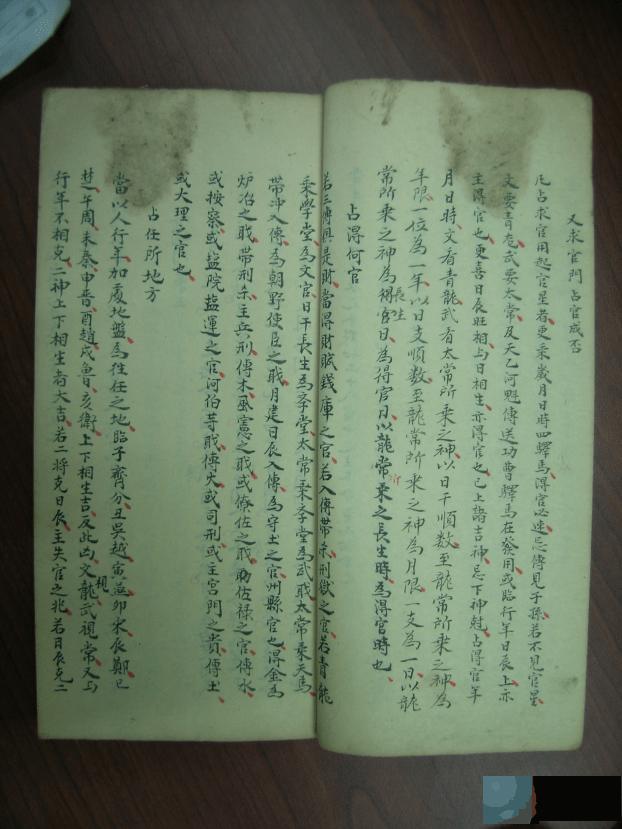 又求官門占官成否
凡占求官用起官星者更乘歲月日時四驛馬得官必速忌傳見子孫若不見官星
文要青龙武要太常及天乙河魁傳送功曹驛馬在發用或臨行年日辰上亦
主得官也更喜日辰旺相上与日相生亦得官也已上諸吉神忌下神尅占得官年
月日時文看青龍武看太常所乘之神以日干順數至龍常所乘之神為
年限一位為一年以日支順數至龍常所乘之神為月限一支為一日以龍
常所乘之神為長生日為得官日以龍常所乘之長生時為得官時也
占得何官
若三傳俱是財當得財賦錢庫之官若入傳帶杀刑獄之官若青龍
乘學堂為文官日干長生為孝堂太常乘孝堂為武职太常乘天馬
帶冲入傳為朝野使臣之戢月建日辰入傳為守土之官州縣官也得金為
炉冶之戢帶刑杀主兵刑傳木風憲之戢或僚佐之戢助佐禄之官傳水
或按察或盐院盐運之官河伯等戢傳火或司刑或主宮門之貴傳土
或大理之官也
占任所地方
當以人行年加處地盤為往任之地臨子齊分丑吳越寅燕卯宋辰鄭巳
楚午周未秦申晋酉趙戌魯亥衛上下相生吉反此凶文龍武視常又与
行年不相克二神上下相生者大吉若二将克日辰主失官之兆若日辰克二